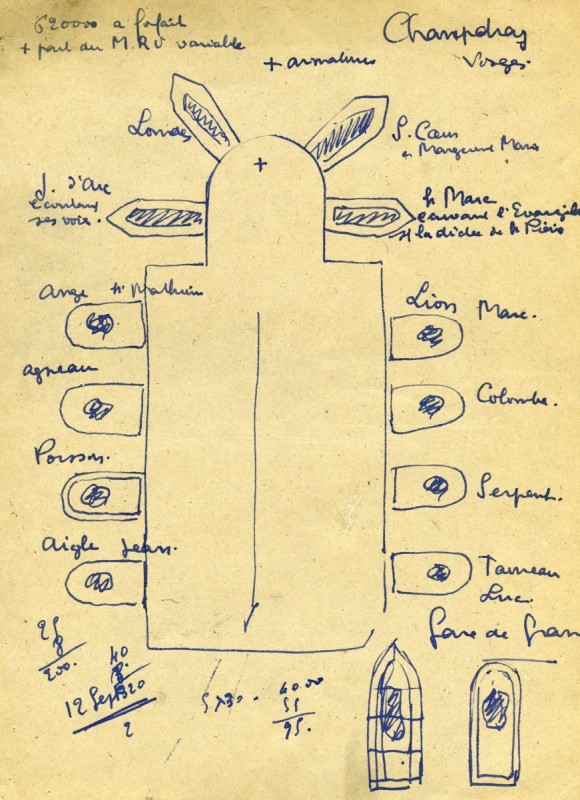 620000 a forfait
+ part du M.R.U variable
Champdray
Vosges.
+ armatures
Lourdes
S. Cœur
Marguerite Marie
J. d'Arc
écoutant
ses voix.
St Marc
écrivant l'Evangile
la dictée de St Pierre
Ange St Mathieu
Lion Marc.
agneau
Colombe.
Poisson.
Serpent.
Aigle Jean.
Taureau
Luc.
25
8
200.
40
8
320
12 Sept
2
5x30
40.00
55
95.
Gare de